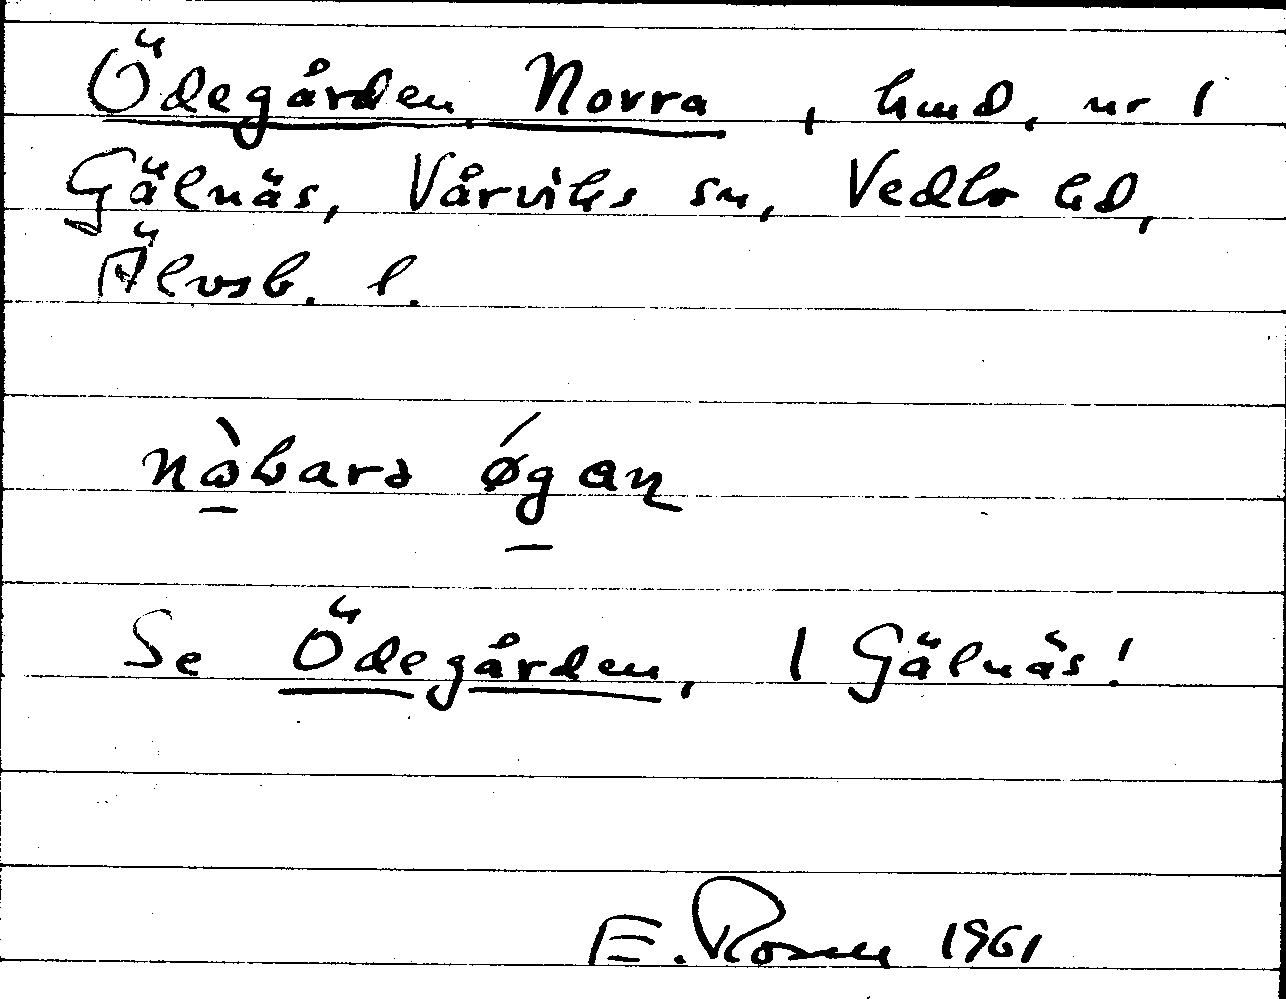 Ödegården, Norra, hmd, nr 1
Gälnäs, Vårviks sn, Vedbo hd,
Älvsb. l.
nàbara øgan
Se Ödegården, 1 Gälnäs!
E. Rosen 1961